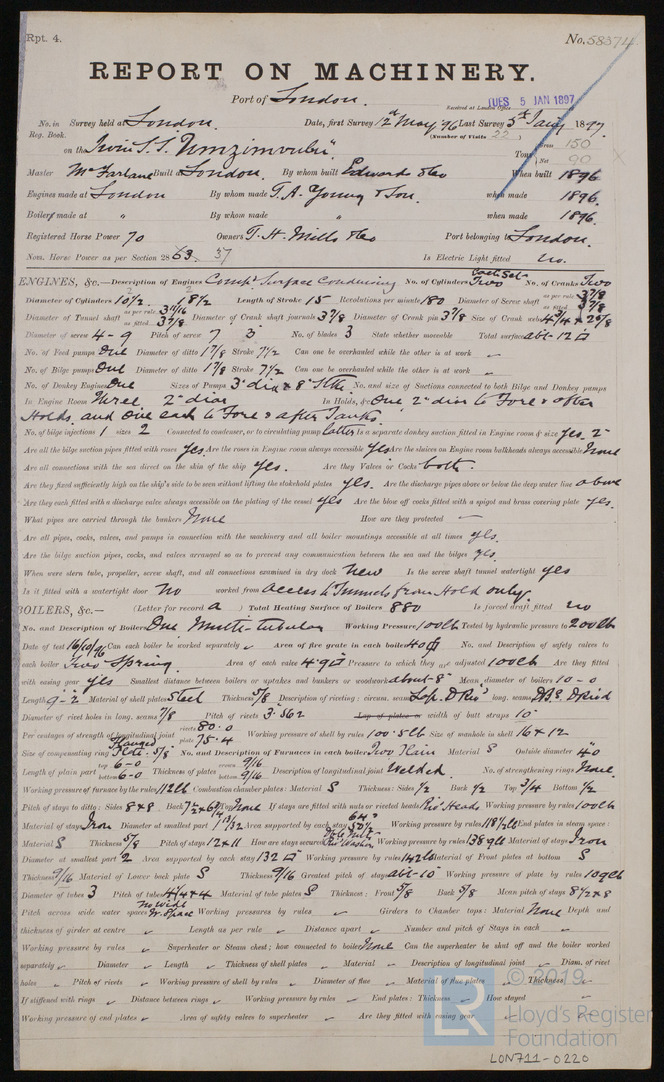 Rpt. 4.
No. 58374
REPORT ON MACHINERY.
Port of London.
Received at London Office TUES 5 JAN 1897
No. in Survey held at London. Date, first Survey 12th May '96 Last Survey 5th Jany 1897.
Reg. Book. (Number of Visits 22)
on the Twin S.S. "Umzimvubu". Tons Gross 150 Net 90
Master McFarlane Built at London. By whom built Edward & Co When built 1896
Engines made at London By whom made T. A. Young & Son. when made 1896.
Boilers made at " By whom made " when made 1896.
Registered Horse Power 70 Owners T. H. Mills & Co Port belonging to London.
Nom. Horse Power as per Section 28 63. 57 Is Electric Light fitted no.
ENGINES, &c.—Description of Engines Compd Surface Condensing No. of Cylinders Two each set No. of Cranks Two
Diameter of Cylinders 10½ 18½ Length of Stroke 15 Revolutions per minute 180 Diameter of Screw shaft as per rule 3 7/8 as fitted 3 7/8
Diameter of Tunnel shaft as per rule 3 11/16 as fitted 3 7/8 Diameter of Crank shaft journals 3 7/8 Diameter of Crank pin 3 7/8 Size of Crank webs 4 3/4 x 2 5/8
Diameter of screw 4-9 Pitch of screw 7 3 No. of blades 3 State whether moveable Total surface abt-12□
No. of Feed pumps One Diameter of ditto 1 7/8 Stroke 7½ Can one be overhauled while the other is at work
No. of Bilge pumps One Diameter of ditto 1 7/8 Stroke 7½ Can one be overhauled while the other is at work
No. of Donkey Engines One Sizes of Pumps 3" dia x 8" Stke No. and size of Suctions connected to both Bilge and Donkey pumps
In Engine Room Three 2" diar In Holds, &c. One 2" diar to Fore & after
Holds, and One each to Fore & after Tanks
No. of bilge injections 1 sizes 2 Connected to condenser, or to circulating pump latter Is a separate donkey suction fitted in Engine room & size yes. 2"
Are all the bilge suction pipes fitted with roses yes Are the roses in Engine room always accessible yes Are the sluices on Engine room bulkheads always accessible None
Are all connections with the sea direct on the skin of the ship yes. Are they Valves or Cocks both.
Are they fixed sufficiently high on the ship's side to be seen without lifting the stokehold plates yes. Are the discharge pipes above or below the deep water line above
Are they each fitted with a discharge valve always accessible on the plating of the vessel yes Are the blow off cocks fitted with a spigot and brass covering plate yes.
What pipes are carried through the bunkers None How are they protected —
Are all pipes, cocks, valves, and pumps in connection with the machinery and all boiler mountings accessible at all times yes.
Are the bilge suction pipes, cocks, and valves arranged so as to prevent any communication between the sea and the bilges yes.
When were stern tube, propeller, screw shaft, and all connections examined in dry dock New Is the screw shaft tunnel watertight yes
Is it fitted with a watertight door No worked from access to Tunnels from Hold only.
BOILERS, &c.— (Letter for record a) Total Heating Surface of Boilers 880 Is forced draft fitted no
No. and Description of Boilers One Multi-tubular Working Pressure 100lb Tested by hydraulic pressure to 200lb
Date of test 16/10/96 Can each boiler be worked separately Area of fire grate in each boiler 40□ No. and Description of safety valves to
each boiler Two Spring Area of each valve 4·9□ Pressure to which they are adjusted 100lb Are they fitted
with easing gear yes Smallest distance between boilers or uptakes and bunkers or woodwork about 8" Mean diameter of boilers 10-0
Length 9-2 Material of shell plates Steel Thickness 5/8 Description of riveting: circum. seams Lap. D Riv. long. seams D.B.S. D Rivd
Diameter of rivet holes in long. seams 7/8 Pitch of rivets 3·562 Lap of plates or width of butt straps 10
Per centages of strength of longitudinal joint rivets 80·0 plate 75·4 Working pressure of shell by rules 100·5lb Size of manhole in shell 16 x 12
Size of compensating ring Flanged Plate 5/8 No. and Description of Furnaces in each boiler Two Plain Material S Outside diameter 40
Length of plain part top 6-0 bottom 6-0 Thickness of plates crown 9/16 bottom 9/16 Description of longitudinal joint Welded No. of strengthening rings None.
Working pressure of furnace by the rules 112lb Combustion chamber plates: Material S Thickness: Sides 1/2 Back 1/2 Top 3/4 Bottom 1/2
Pitch of stays to ditto: Sides 8x8 Back Top None If stays are fitted with nuts or riveted heads Riv. Heads Working pressure by rules 100lb
Material of stays Iron Diameter at smallest part 1 13/32 Area supported by each stay 64" Working pressure by rules 118½lb End plates in steam space:
Material S Thickness 5/8 Pitch of stays 12 x 11 How are stays secured Dble Nuts Riv Washers Working pressure by rules 138·9lb Material of stays Iron
Diameter at smallest part 2 Area supported by each stay 132□ Working pressure by rules 142lb Material of Front plates at bottom S
Thickness 9/16 Material of Lower back plate S Thickness 9/16 Greatest pitch of stays abt-10 Working pressure of plate by rules 109lb
Diameter of tubes 3 Pitch of tubes 4¼ x 4 Material of tube plates S Thickness: Front 5/8 Back 5/8 Mean pitch of stays 8½ x 8
Pitch across wide water spaces No Wide Wr. Space Working pressures by rules Girders to Chamber tops: Material None Depth and
thickness of girder at centre Length as per rule Distance apart Number and pitch of Stays in each
Working pressure by rules Superheater or Steam chest; how connected to boiler None Can the superheater be shut off and the boiler worked
separately Diameter Length Thickness of shell plates Material Description of longitudinal joint Diam. of rivet
holes Pitch of rivets Working pressure of shell by rules Diameter of flue Material of flue plates Thickness
If stiffened with rings Distance between rings Working pressure by rules End plates: Thickness How stayed
Working pressure of end plates Area of safety valves to superheater Are they fitted with easing gear
© 2019
Lloyd's Register
Foundation
LR
LON711-0220